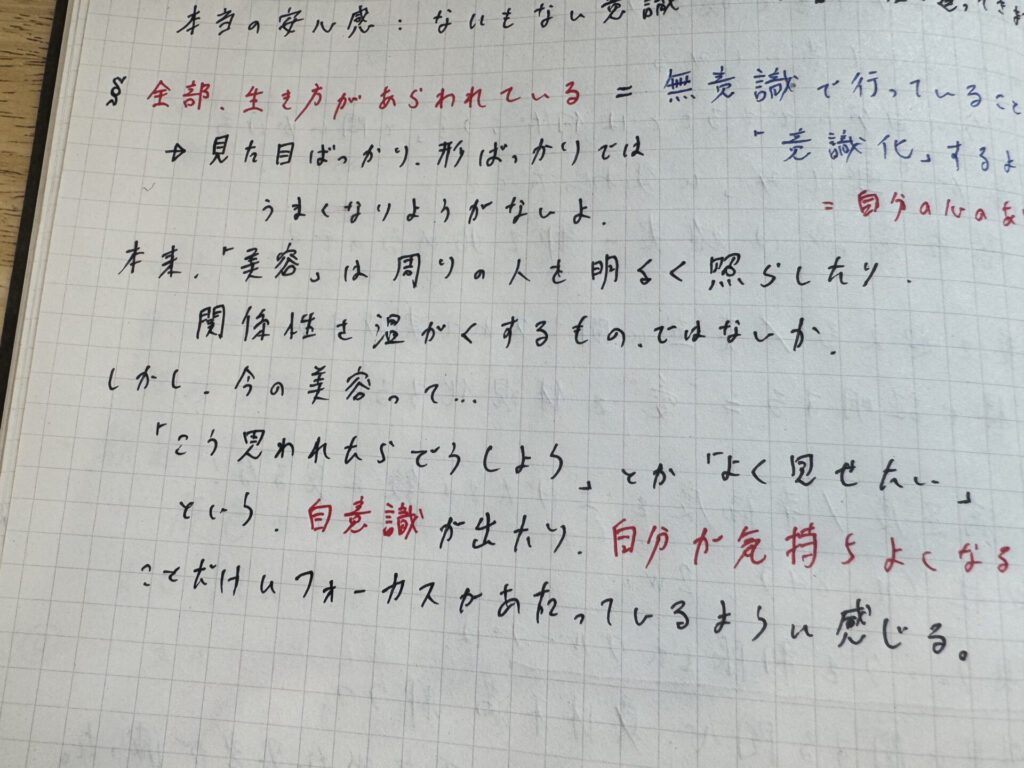 本当の安心感：ないもない意識
§ 全部、生き方があらわれている = 無意識で行っていること
→ 見た目ばっかり、形ばっかりでは 「意識化」するよ
うまくなりようがないよ。 = 自分の心のあ
本来、「美容」は周りの人を明るく照らしたり、
関係性を温かくするもの、ではないか、
しかし、今の美容って…
「こう思われたらどうしよう」とか「よく見せたい」
という、自意識が出たり、自分が気持ちよくなる
ことだけにフォーカスがあたっているように感じる。